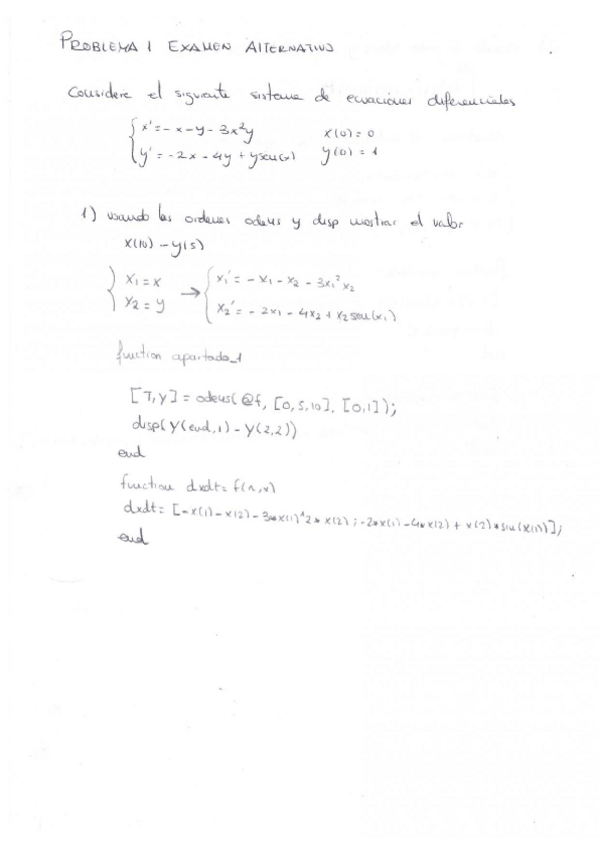 PROBLEMA 1 EXAMEN ALTERNATIVO
Considere el siguiente sistema de ecuaciones diferenciales
{ x' = -x - y - 3x²y x(0) = 0
y' = -2x - 4y + y sen(x) y(0) = 1
1) usando las ordenes ode45 y disp mostrar el valor
x(10) - y(5)
{ x₁ = x → { x₁' = -x₁ - x₂ - 3x₁² x₂
x₂ = y x₂' = -2x₁ - 4x₂ + x₂ sen(x₁)
function apartado_1
[T,Y] = ode45(@f, [0,5,10], [0,1]);
disp(Y(end,1) - Y(2,2))
end
function dxdt = f(n,x)
dxdt = [-x(1) - x(2) - 3*x(1)^2*x(2); -2*x(1) - 4*x(2) + x(2)*sin(x(1))];
end